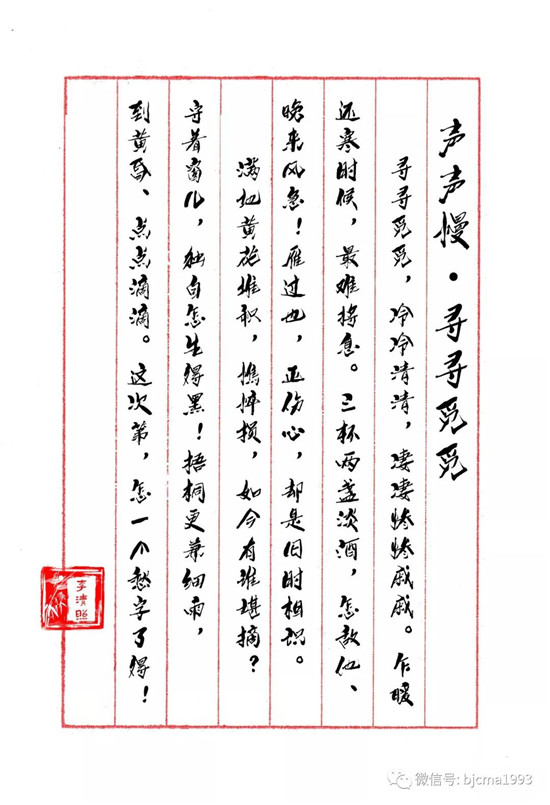 声声慢·寻寻觅觅
寻寻觅觅，冷冷清清，凄凄惨惨戚戚。乍暖
还寒时候，最难将息。三杯两盏淡酒，怎敌他、
晚来风急！雁过也，正伤心，却是旧时相识。
满地黄花堆积，憔悴损，如今有谁堪摘？
守着窗儿，独自怎生得黑！梧桐更兼细雨，
到黄昏、点点滴滴。这次第，怎一个愁字了得！
李清照
微信号: bjcma1993